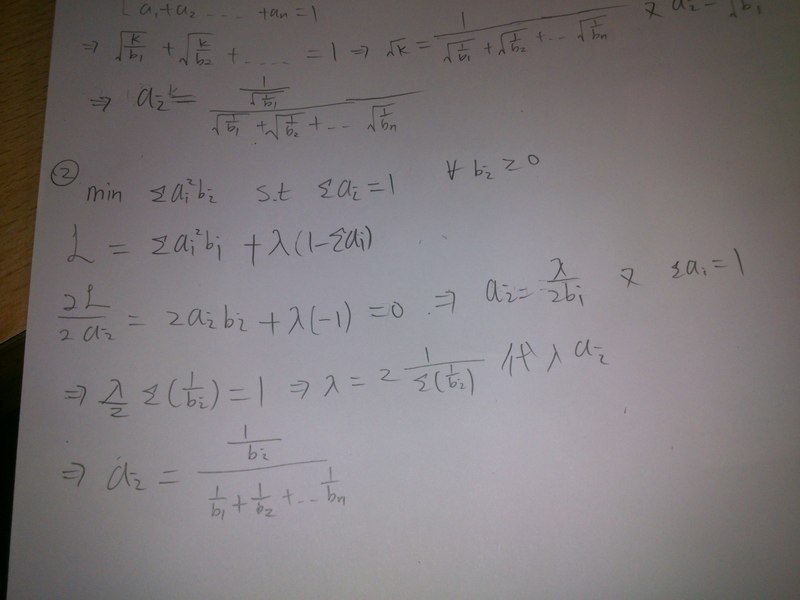 a₁+a₂ ..... +aₙ=1
⇒ √(k/b₁) + √(k/b₂) + ..... = 1 ⇒ √k = 1/(√(1/b₁) + √(1/b₂) + ... √(1/bₙ)) 又
⇒ = (1/√b₁)/(√(1/b₁) + √(1/b₂) + ... √(1/bₙ))
② min Σaᵢ²bᵢ s.t Σaᵢ=1 ∀ bᵢ ≥ 0
L = Σaᵢ²bᵢ + λ(1-Σaᵢ)
∂L/∂aᵢ = 2aᵢbᵢ + λ(-1) = 0 ⇒ aᵢ = λ/2bᵢ 又 Σaᵢ=1
⇒ λ/2 Σ(1/bᵢ) = 1 ⇒ λ = 2 1/Σ(1/bᵢ) 代入 aᵢ
⇒ aᵢ = (1/bᵢ)/(1/b₁ + 1/b₂ + ... 1/bₙ)